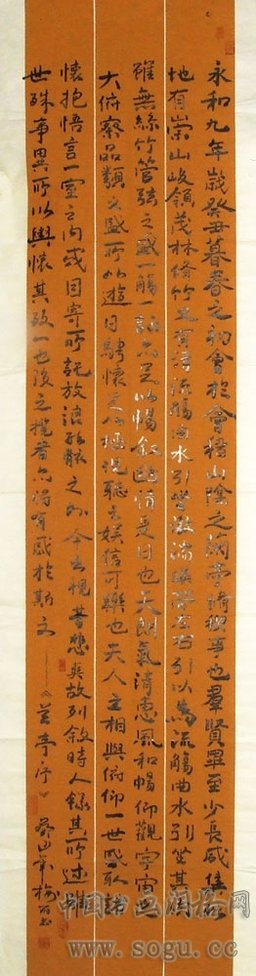 永和九年歲癸丑暮春之初會於會稽山陰之蘭亭脩禊事也羣賢畢至少長咸集此
地有崇山峻領茂林脩竹又有清流觴曲水引坐激湍暎帶左右引以為流觴曲水引坐其次
雖無絲竹管弦之盛一觴一詠亦足以暢叙幽情是日也天朗氣清惠風和暢仰觀宇宙之
大俯察品類之盛所以遊目騁懷足以極視聽之娛信可樂也夫人之相與俯仰一世或取諸
懷抱悟言一室之內或因寄所託放浪形骸之外今之視昔悲夫故列敘時人錄其所述雖
世殊事異所以興懷其致一也後之攬者亦將有感於斯文——《兰亭序》癸巳年
www.sogu.cc